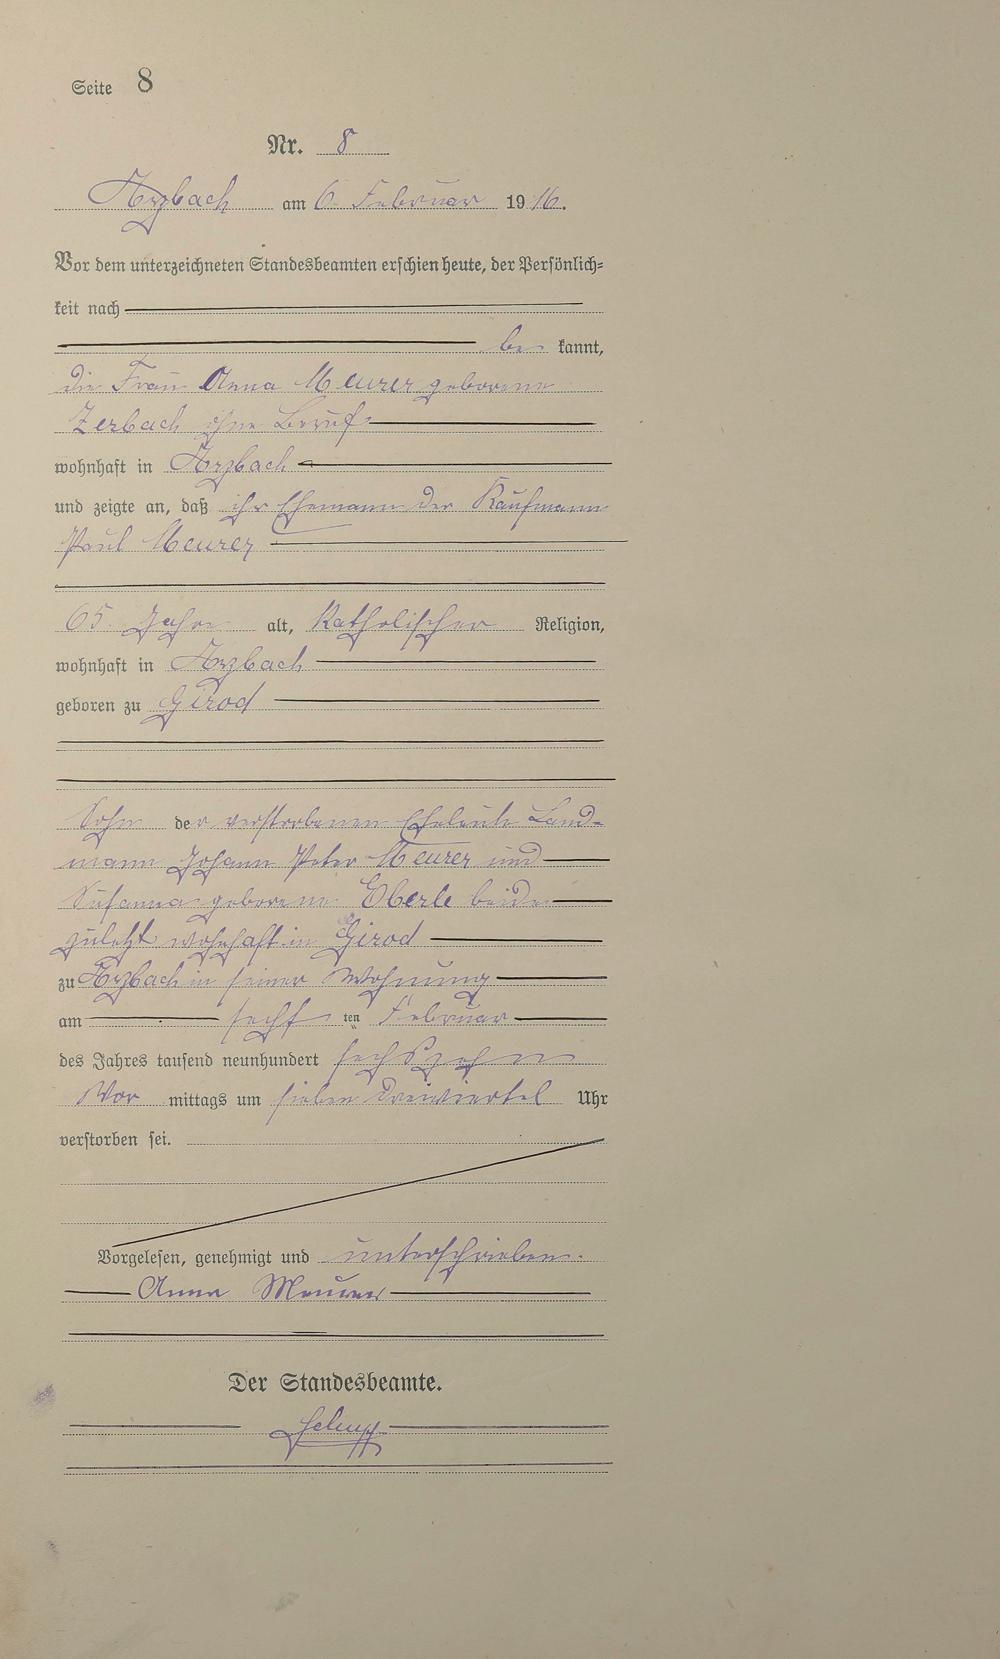 Seite 8
Nr. 8
Arzbach am 6. Februar 1916.
Vor dem unterzeichneten Standesbeamten erschien heute, der Persönlich-
keit nach
be kannt,
die Frau Anna Meurer geborene
Zerbach ohne Beruf
wohnhaft in Arzbach
und zeigte an, daß ihr Ehemann der Kaufmann
Paul Meurer
65 Jahre alt, Katholischer Religion,
wohnhaft in Arzbach
geboren zu Girod
Sohn der verstorbenen Eheleute Land-
mann Johann Peter Meurer und
Susanna geborene Eberle beide
zuletzt wohnhaft in Girod
zu Arzbach in seiner Wohnung
am sechs ten Februar
des Jahres tausend neunhundert sechszehn
Vor mittags um sieben Dreiviertel Uhr
verstorben sei.
Vorgelesen, genehmigt und unterschrieben.
Anna Meurer
Der Standesbeamte.